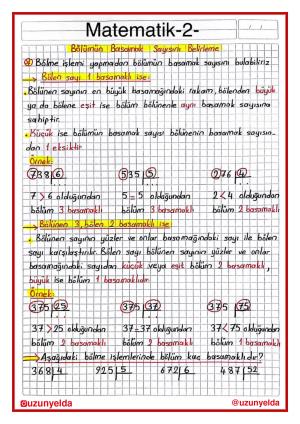 Matematik-2-
Bölümün Basamak Sayısını Belirleme
Bölme işlemi yapmadan bölümün basamak sayısını bulabiliriz
Bölen sayı 1 basamaklı ise:
Bölünen sayının en büyük basamağındaki rakam, bölenden büyük
ya da bölene eşit ise bölüm bölünenle aynı basamak sayısına
sahiptir.
Küçük ise bölümün basamak sayısı bölünenin basamak sayısın-
dan 1 eksiktir.
Örnek:
738 6 535 5 276 4
7 > 6 olduğundan 5 = 5 olduğundan 2 < 4 olduğundan
bölüm 3 basamaklı bölüm 3 basamaklı bölüm 2 basamaklı
Bölünen 3, bölen 2 basamaklı ise
Bölünen sayının yüzler ve onlar basamağındaki sayı ile bölen
sayı karşılaştırılır. Bölen sayı bölünen sayının yüzler ve onlar
basamağındaki sayıdan küçük veya eşit bölüm 2 basamaklı,
büyük ise bölüm 1 basamaklıdır.
Örnek:
375 25 375 37 375 75
37 > 25 olduğundan 37 = 37 olduğundan 37 < 75 olduğundan
bölüm 2 basamaklı bölüm 2 basamaklı bölüm 1 basamaklı
Aşağıdaki bölme işlemlerinde bölüm kaç basamaklıdır?
368 4 925 5 672 6 487 52
@uzunyelda @uzunyelda